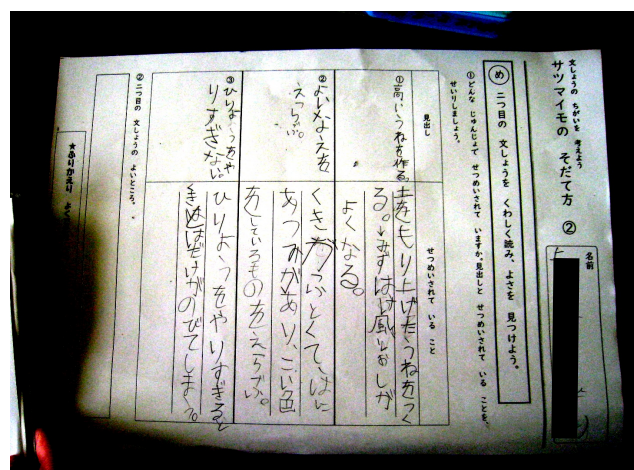 文しょうの ちがいを 考えよう
サツマイモの そだて方 ②
名前
め 二つ目の 文しょうを くわしく読み、よさを 見つけよう。
①どんな じゅんじょで せつめいされて いますか。見出しと せつめいされて いる ことを、
せいりしましょう。
見出し
せつめいされて いる こと
①高いうねを作る。
土をもり上げたうねをつく
る。→みずはけ、風とおしが
よくなる。
②よいなえを
えらぶ。
くきがふとくて、はに
あつみがあり、こい色
をしているものをえらぶ。
③ひりょうをや
りすぎない
ひりょうをやりすぎると
きはばだけがのびてしまう。
② 二つ目の 文しょうの よいところ。
★ふりかえり